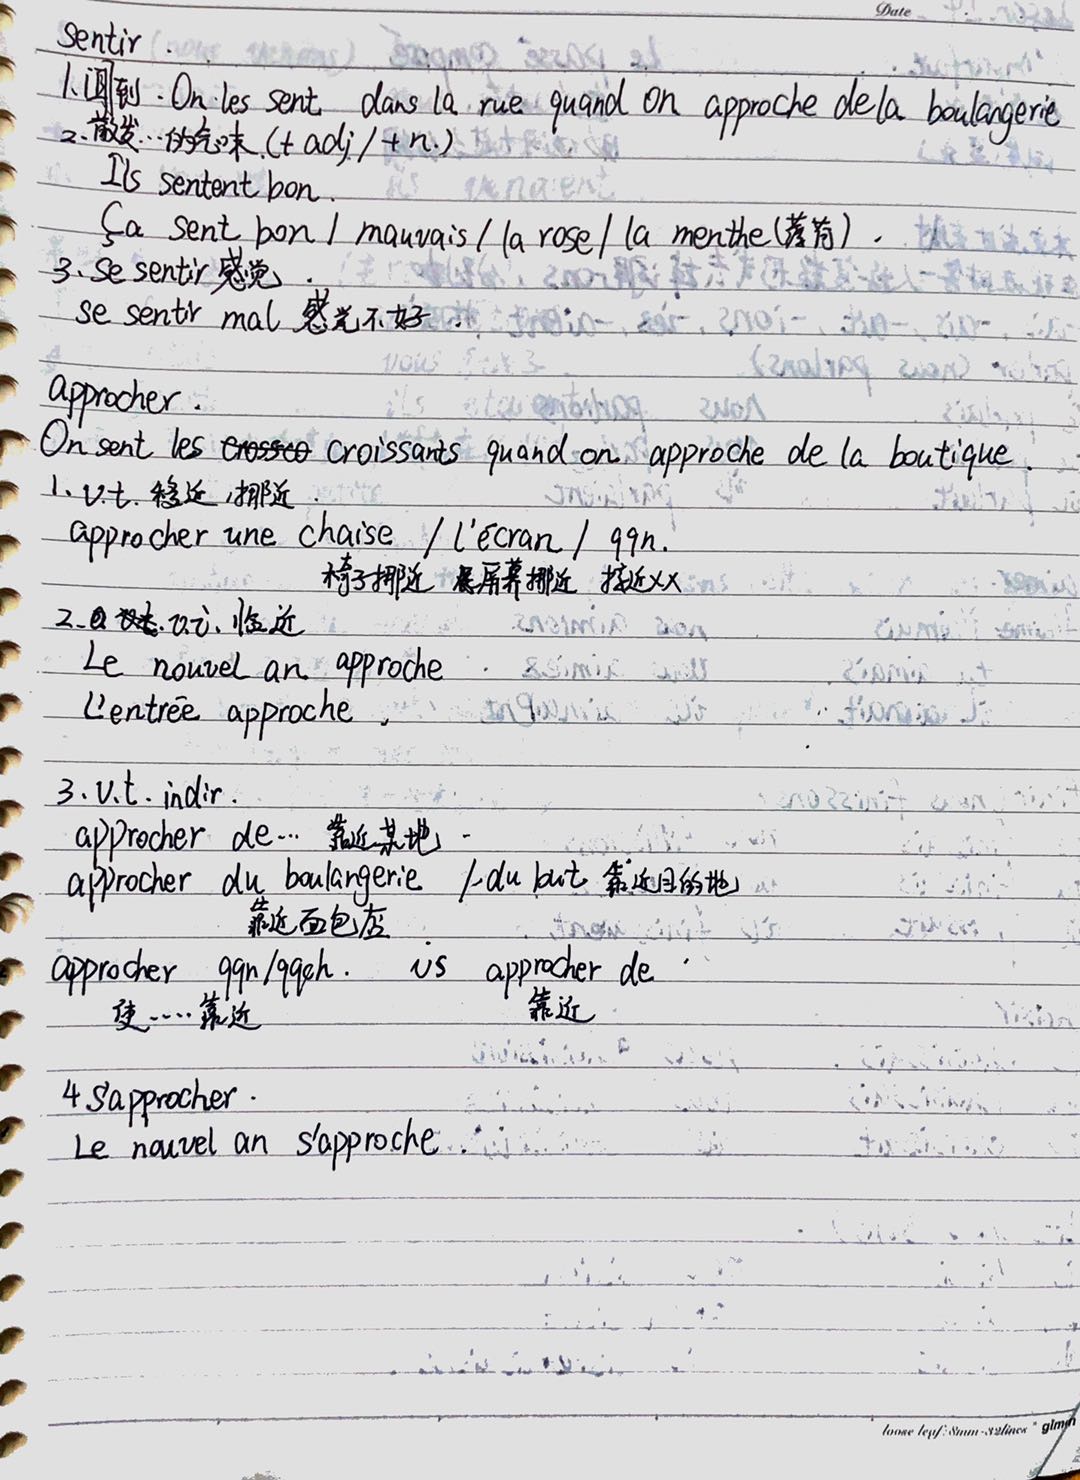 Date
sentir.
1.闻到. On les sent dans la rue quand on approche de la boulangerie
2.散发…的气味.(+ adj/ + n.)
Ils sentent bon.
Ça sent bon / mauvais / la rose / la menthe(薄荷).
3. se sentir 感觉.
se sentir mal 感觉不好.
approcher.
On sent les croissants quand on approche de la boutique.
1. v.t. 移近,挪近.
approcher une chaise / l'écran / qqn.
椅子挪近 屏幕挪近 接近××
2. v.i. 临近
Le nouvel an approche.
L'entrée approche.
3. v.t. indir.
approcher de… 靠近某地.
approcher du boulangerie /-du but 靠近目的地
靠近面包店
approcher qqn/qqch. vs approcher de
使……靠近 靠近
4 S'approcher.
Le nouvel an s'approche.
loose leaf: 8mm-32lines